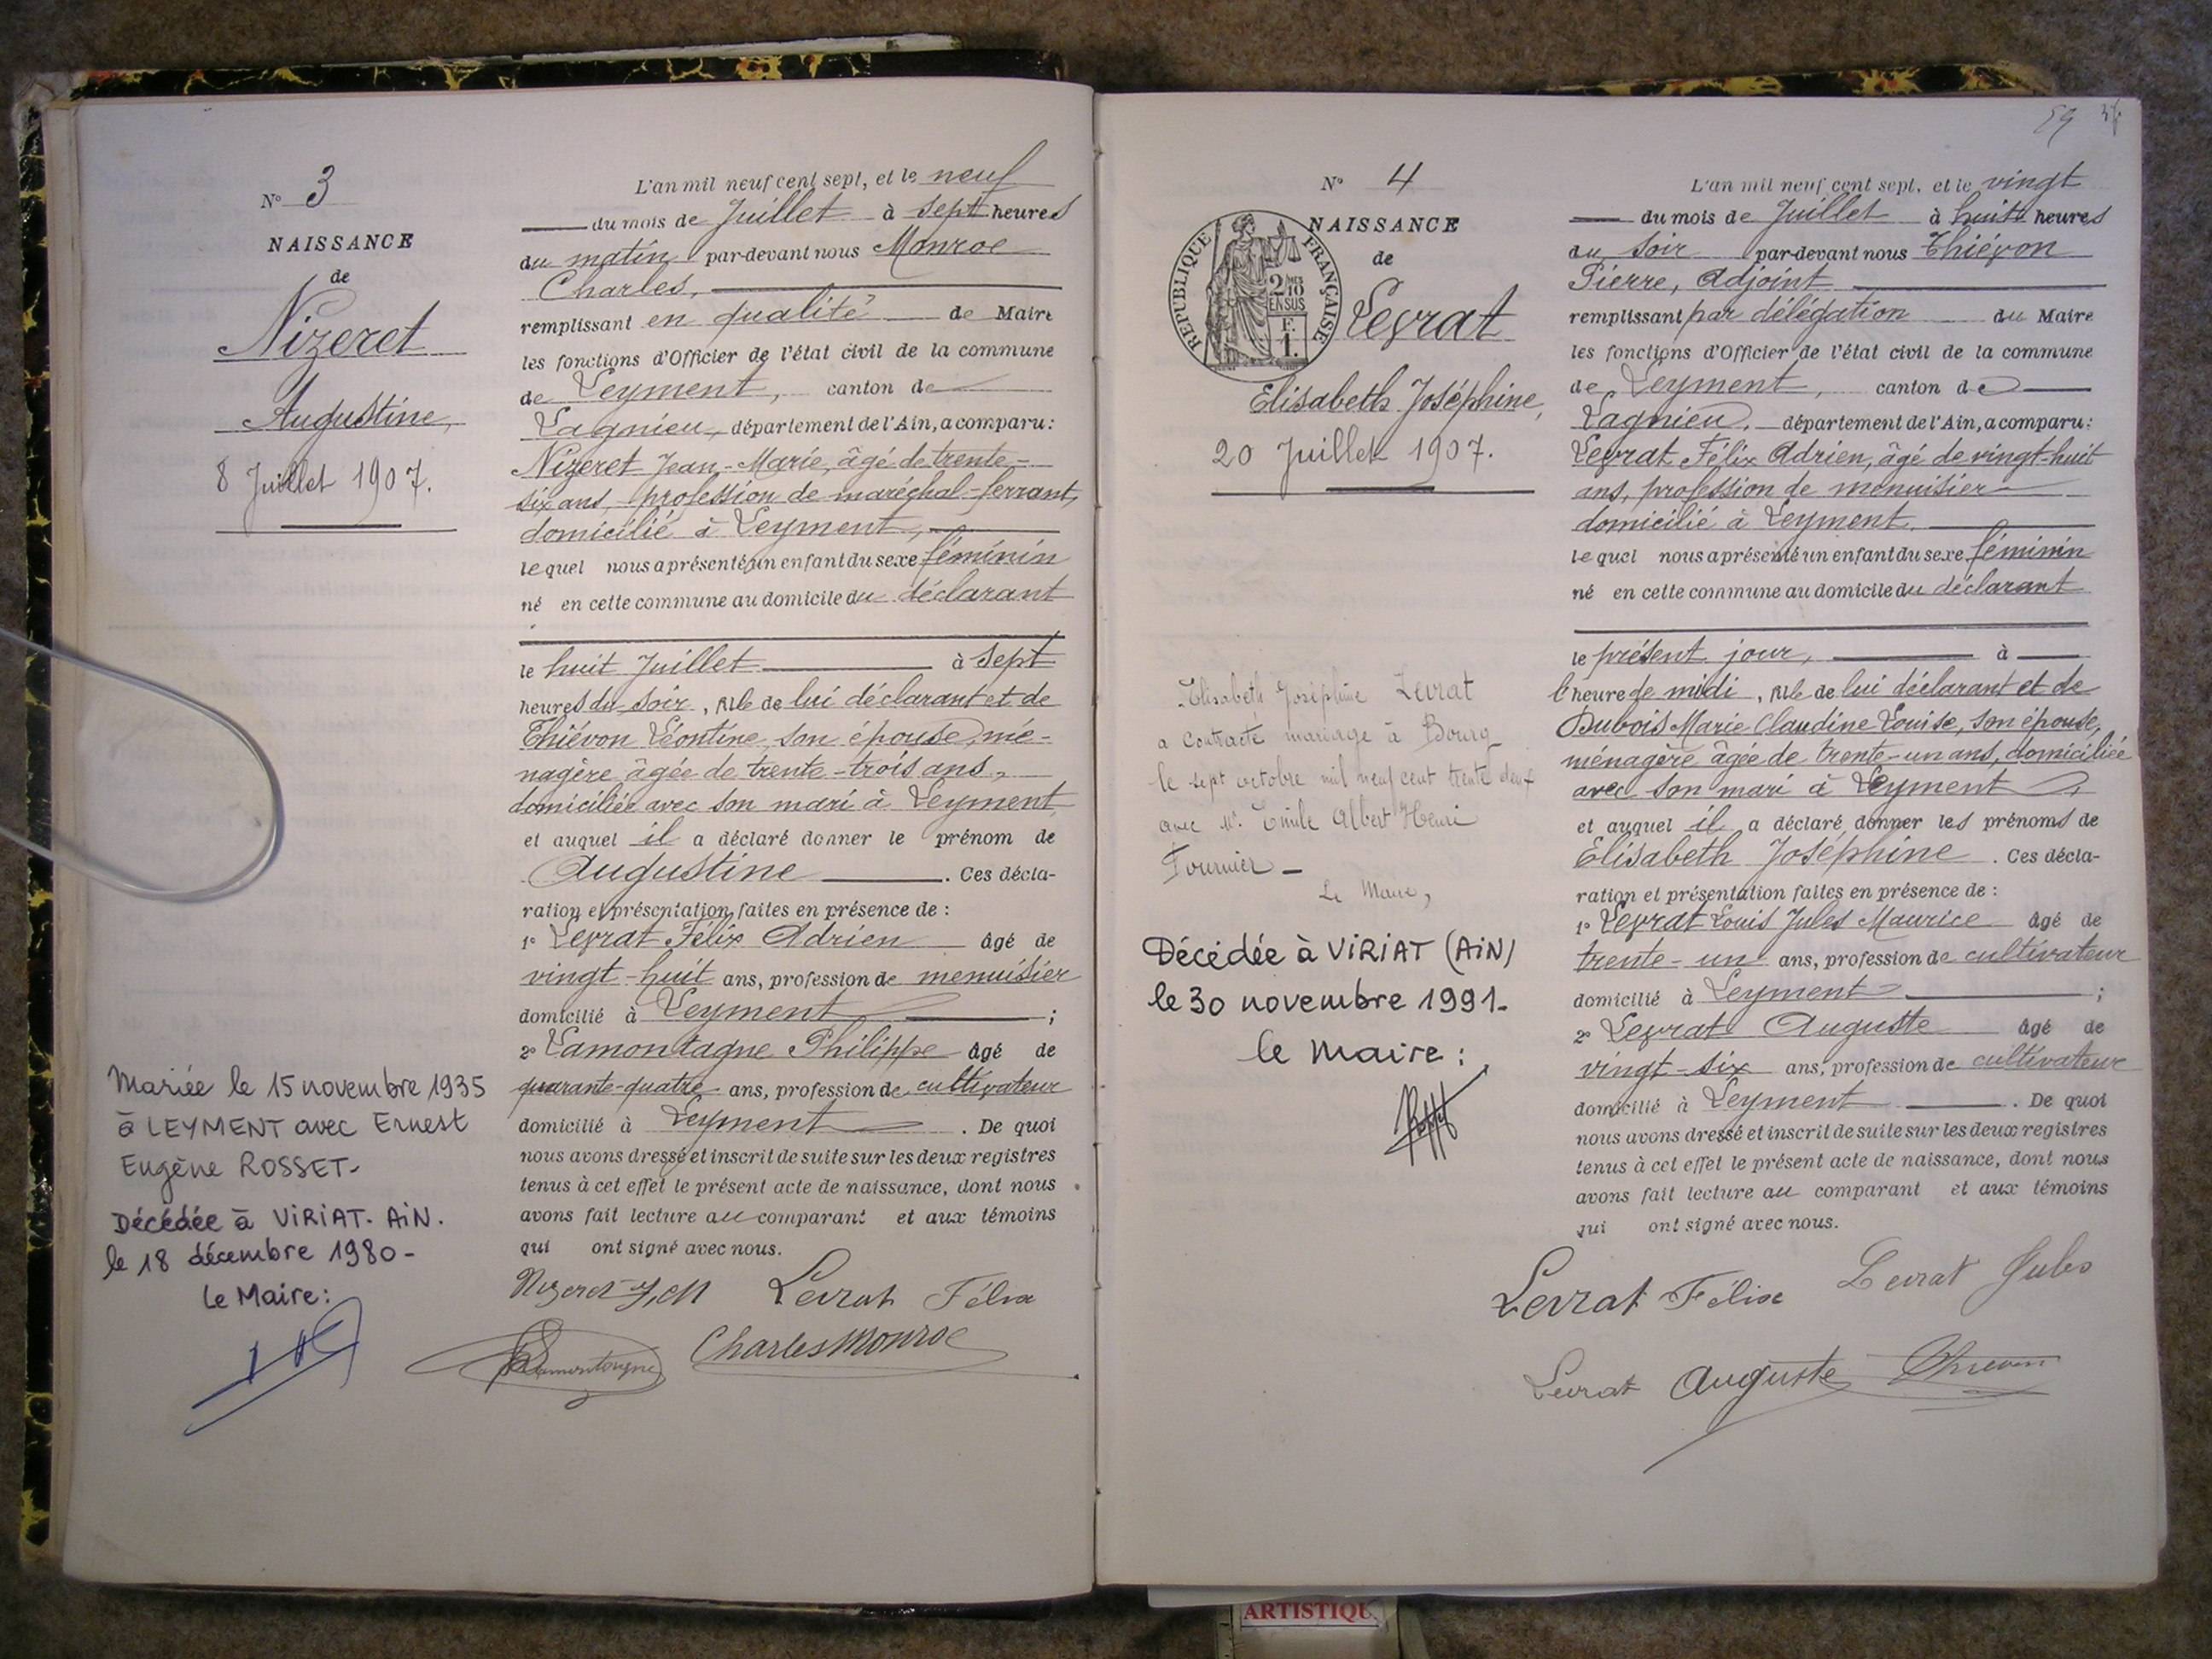 N° 3
NAISSANCE
de
Nizeret
Augustine,
8 Juillet 1907.
Mariée le 15 novembre 1935
à LEYMENT avec Ernest
Eugène ROSSET-
Décédée à VIRIAT. AIN.
le 18 décembre 1980-
Le Maire:
L'an mil neuf cent sept, et le neuf
du mois de Juillet à sept heures
du matin par-devant nous Monroe
Charles,
remplissant en qualité de Maire
les fonctions d'Officier de l'état civil de la commune
de Leyment, canton de
Lagnieu, département de l'Ain, a comparu:
Nizeret Jean-Marie, âgé de trente-
six ans, profession de maréchal-ferrant,
domicilié à Leyment,
lequel nous a présenté un enfant du sexe féminin
né en cette commune au domicile du déclarant
le huit Juillet à sept
heures du soir, fille de lui déclarant et de
Thiévon Léontine, son épouse, mé-
nagère âgée de trente-trois ans,
domiciliée avec son mari à Leyment,
et auquel il a déclaré donner le prénom de
Augustine. Ces décla-
ration et présentation faites en présence de :
1° Levrat Félix Adrien âgé de
vingt-huit ans, profession de menuisier
domicilié à Leyment ;
2° Lamontagne Philippe âgé de
quarante-quatre ans, profession de cultivateur
domicilié à Leyment. De quoi
nous avons dressé et inscrit de suite sur les deux registres
tenus à cet effet le présent acte de naissance, dont nous
avons fait lecture au comparant et aux témoins
qui ont signé avec nous.
Nizeret J,M Levrat Félix
Lamontagne Charles Monroe
59
N° 4
NAISSANCE
de
REPUBLIQUE FRANÇAISE
2/10 EN SUS
F.
1.
Levrat
Elisabeth Joséphine,
20 Juillet 1907.
Elisabeth Joséphine Levrat
a contracté mariage à Bourg
le sept octobre mil neuf cent trente deux
avec Mr. Emile Albert Henri
Fournier -
Le Maire,
Décédée à VIRIAT (AIN)
le 30 novembre 1991-
le Maire :
L'an mil neuf cent sept, et le vingt
du mois de Juillet à huit heures
du soir par-devant nous Thiévon
Pierre, Adjoint
remplissant par délégation du Maire
les fonctions d'Officier de l'état civil de la commune
de Leyment, canton de
Lagnieu, département de l'Ain, a comparu:
Levrat Félix Adrien, âgé de vingt-huit
ans, profession de menuisier
domicilié à Leyment,
lequel nous a présenté un enfant du sexe féminin
né en cette commune au domicile du déclarant
le présent jour, à
l'heure de midi, fille de lui déclarant et de
Dubois Marie Claudine Louise, son épouse,
ménagère âgée de trente-un ans, domiciliée
avec son mari à Leyment,
et auquel il a déclaré donner les prénoms de
Elisabeth Joséphine. Ces décla-
ration et présentation faites en présence de :
1° Levrat Louis Jules Maurice âgé de
trente-un ans, profession de cultivateur
domicilié à Leyment ;
2° Levrat Auguste âgé de
vingt-six ans, profession de cultivateur
domicilié à Leyment. De quoi
nous avons dressé et inscrit de suite sur les deux registres
tenus à cet effet le présent acte de naissance, dont nous
avons fait lecture au comparant et aux témoins
qui ont signé avec nous.
Levrat Félix Levrat Jules
Levrat Auguste Thievon
ARTISTIQU